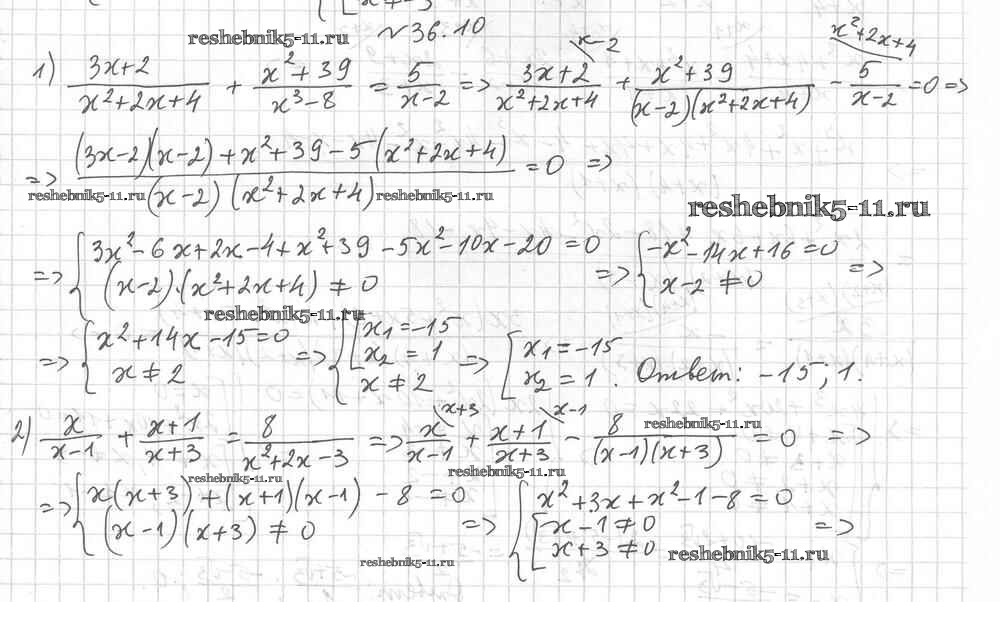 reshebnik5-11.ru №36.10
1) (3x+2)/(x²+2x+4) + (x²+39)/(x³-8) = 5/(x-2) => (3x+2)/(x²+2x+4) \x-2 + (x²+39)/((x-2)(x²+2x+4)) - 5/(x-2) \x²+2x+4 = 0 =>
=> ((3x-2)(x-2)+x²+39-5(x²+2x+4))/((x-2)(x²+2x+4)) = 0 =>
reshebnik5-11.ru reshebnik5-11.ru
reshebnik5-11.ru
=> { 3x²-6x+2x-4+x²+39-5x²-10x-20=0 => { -x²-14x+16=0 =>
(x-2)·(x²+2x+4) ≠ 0 x-2 ≠ 0
reshebnik5-11.ru
=> { x²+14x-15=0 => { [ x₁=-15 => [ x₁=-15
x ≠ 2 x₂ = 1 x₂ = 1. Ответ: -15; 1.
x ≠ 2
2) x/(x-1) + (x+1)/(x+3) = 8/(x²+2x-3) => x/(x-1) \x+3 + (x+1)/(x+3) \x-1 - 8/((x-1)(x+3)) = 0 =>
reshebnik5-11.ru
reshebnik5-11.ru reshebnik5-11.ru
=> { x(x+3)+(x+1)(x-1)-8=0 => { x²+3x+x²-1-8=0 =>
(x-1)(x+3) ≠ 0 [ x-1 ≠ 0
x+3 ≠ 0
reshebnik5-11.ru reshebnik5-11.ru